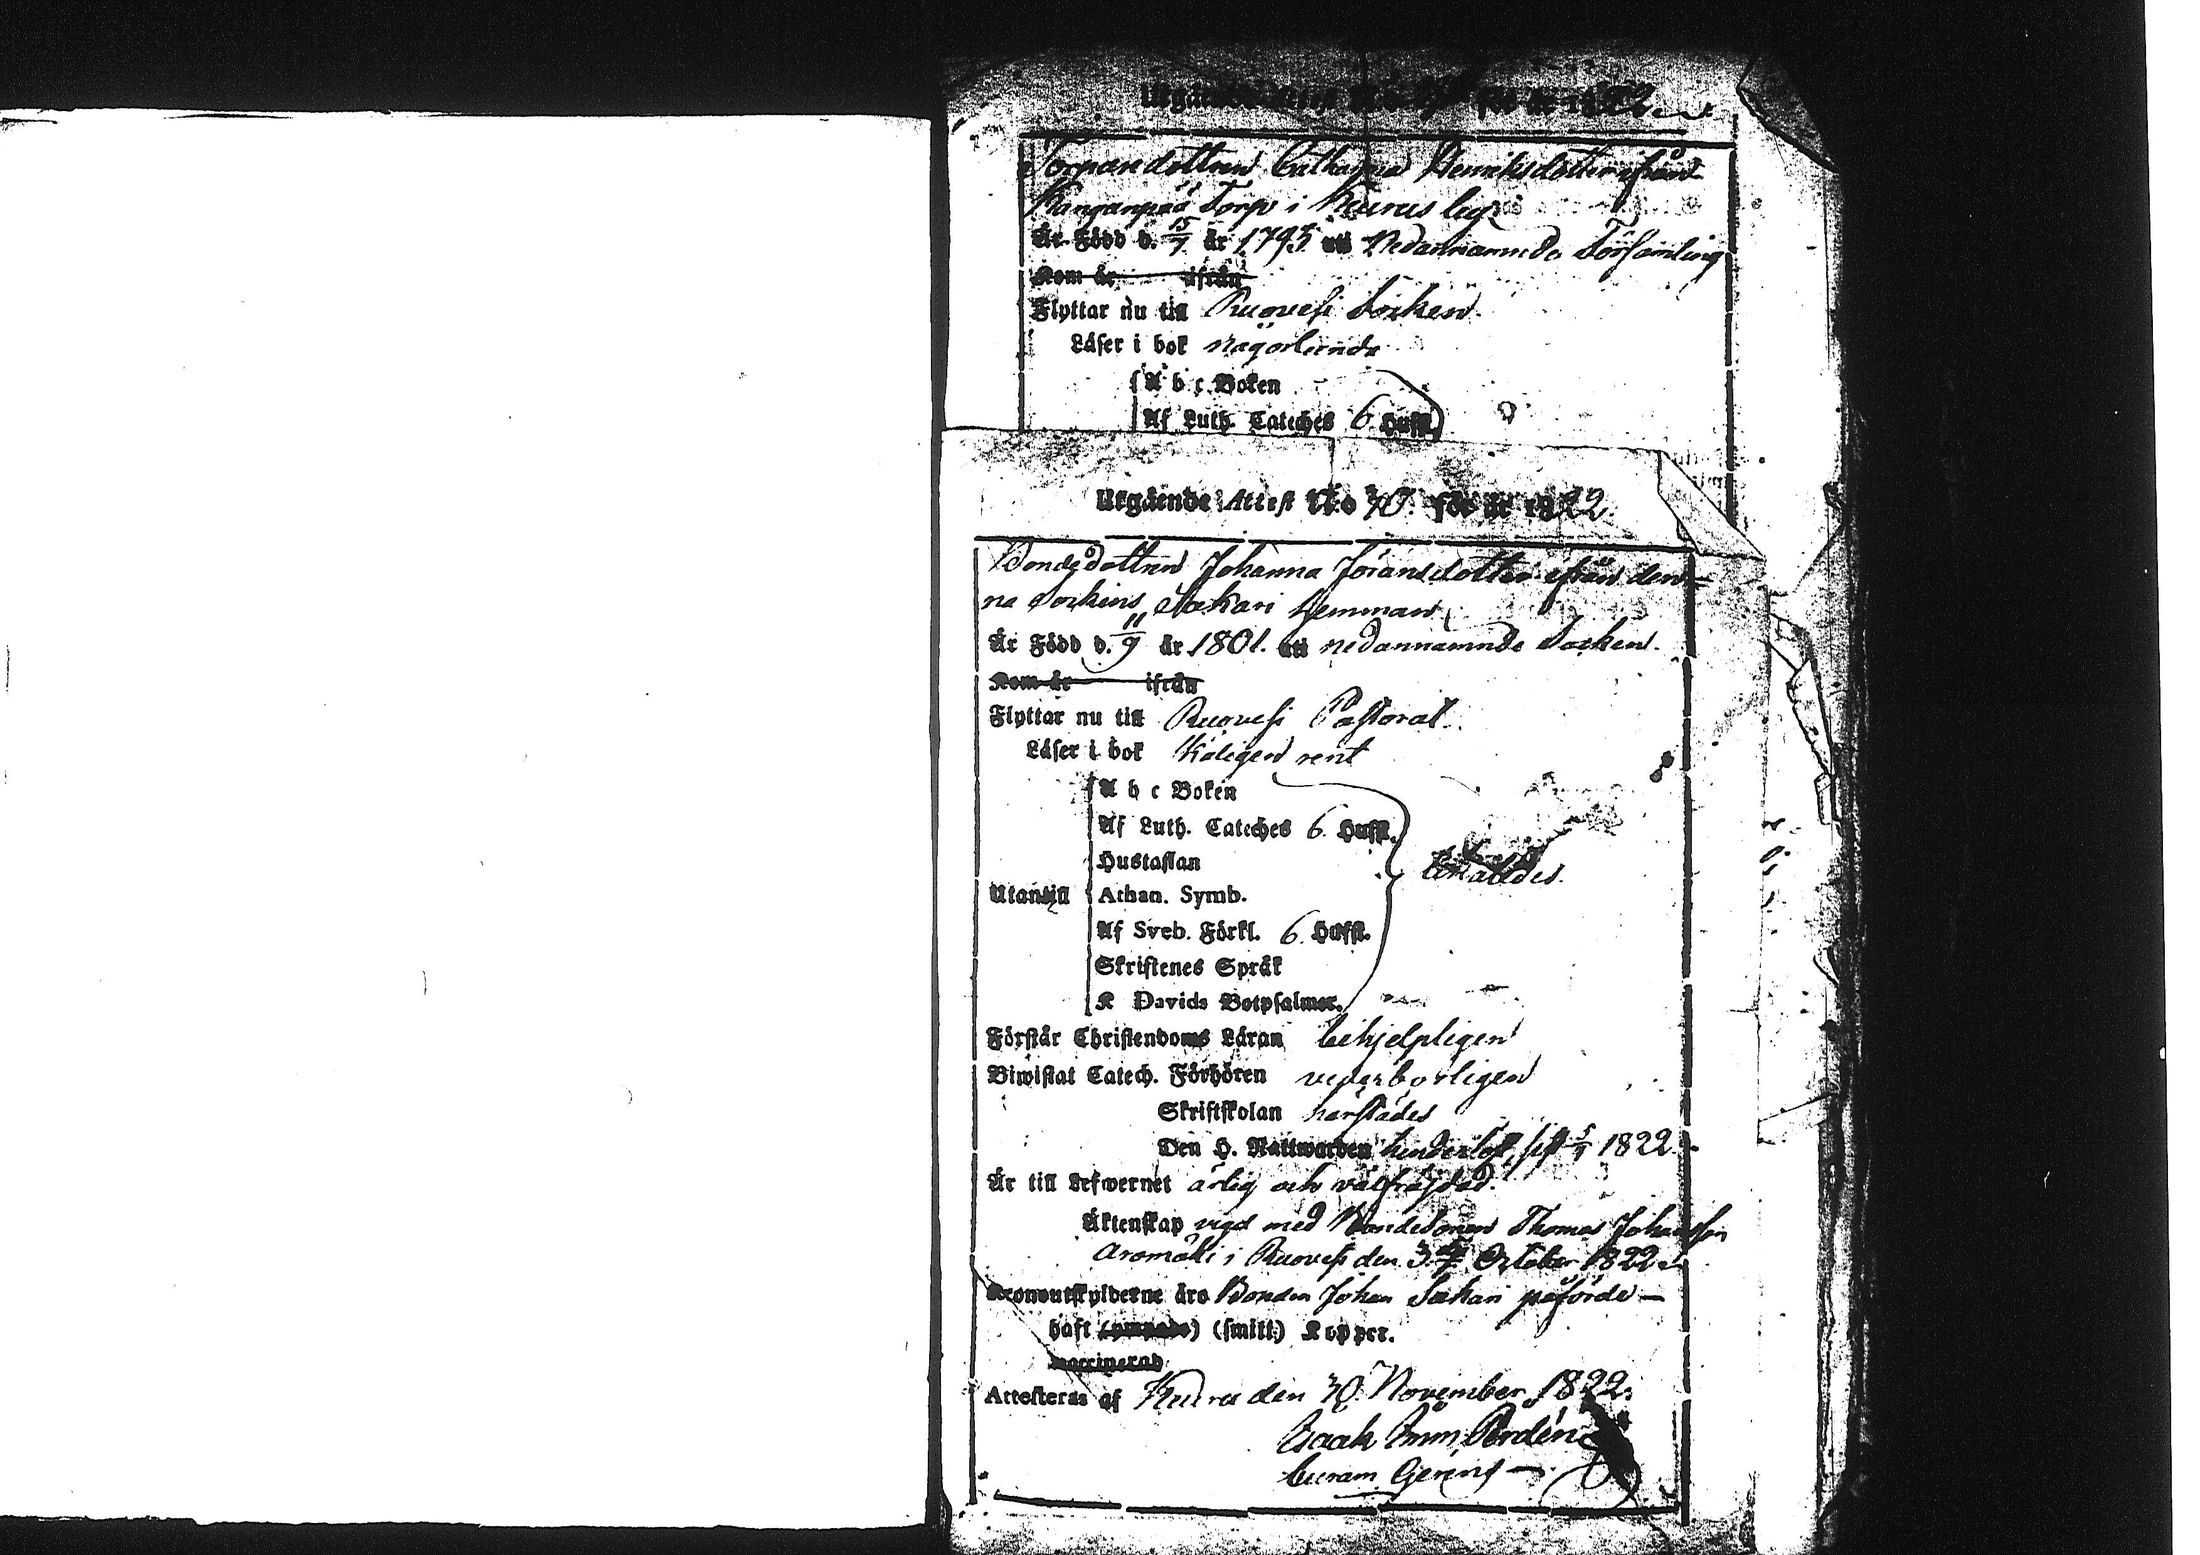 Utgående Attest N:o för år 1822.
Torparedottren Catharina Henriksdotter ifrån
Kanganpää Torp i Keurus by
Är Född d. 15/7 år 1795 uti Nedannamnde Församling
Kom år ifrån
Flyttar nu till Ruovesi Socken.
Läser i bok någorlunda
A b c Boken
Af Luth. Cateches 6. Hufst.
Utgående Attest N:o 70. för år 1822.
Bondedottren Johanna Jöransdotter ifrån den-
na Sockens Hemman
Är Född d. 11/9 år 1801. uti nedannamnde Socken.
Kom år ifrån
Flyttar nu till Ruovesi Pastorat.
Läser i bok rent
A b c Boken
Af Luth. Cateches 6. Hufst.
Hustaflan
Utantill Athan. Symb.
Af Sveb. Förkl. 6. Hufst.
Skriftenes Språk
K Davids Botpsalmer.
Förstår Christendoms Läran behjelpligen
Biwistat Catech. Förhören vederbörligen
Skriftskolan härstädes
Den H. Nattwarden sist 1822
Är till Lefwernet ärlig och välfräjdad.
Äktenskap vigd med Bondesonen Thomas Johansson
Aromäki i Ruovesi den October 1822.
Kronoutskylderne äro Bonden Johan påförde —
haft (ympade) (smitt.) Kopper.
vaccinerad
Attesteras af Keuru den 30. November 1822.
Isaak Imm. Pordén
Curam Gerens